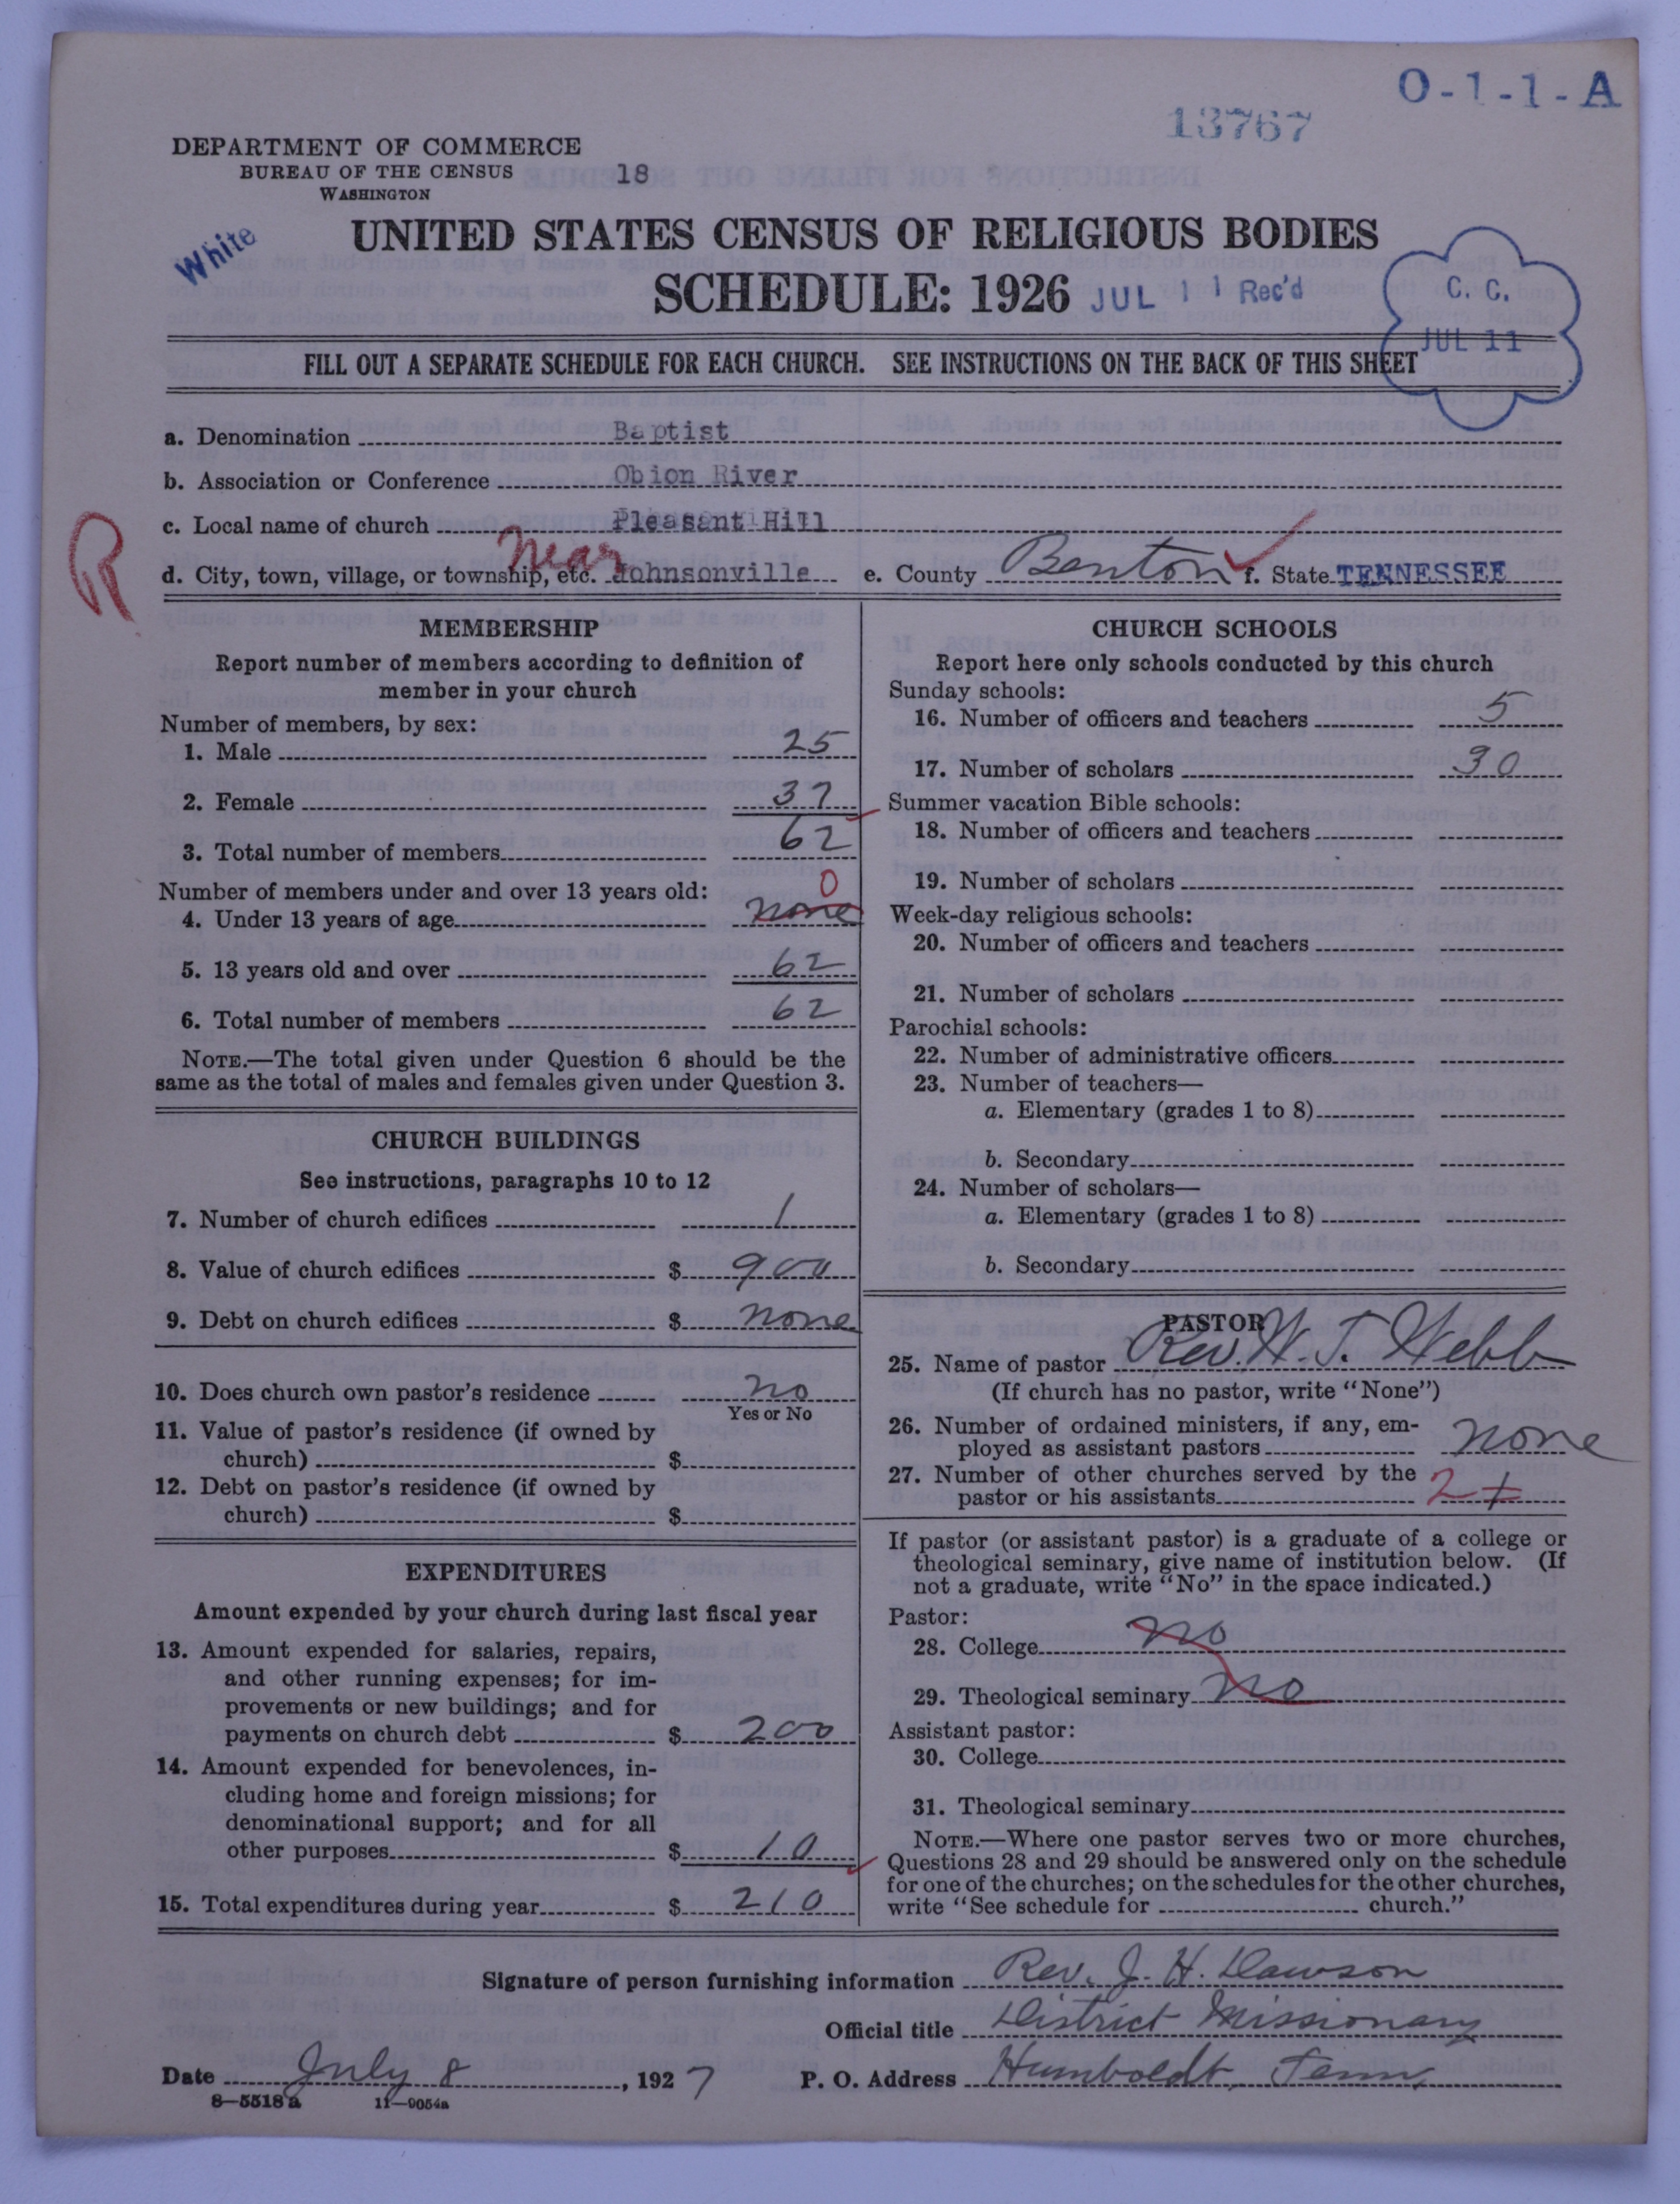 O-1-1-A
13767
DEPARTMENT OF COMMERCE
BUREAU OF THE CENSUS
WASHINGTON
18
White
UNITED STATES CENSUS OF RELIGIOUS BODIES
SCHEDULE: 1926
JUL 11 Rec'd
C. C.
JUL 11
FILL OUT A SEPARATE SCHEDULE FOR EACH CHURCH. SEE INSTRUCTIONS ON THE BACK OF THIS SHEET
a. Denomination Baptist
b. Association or Conference Obion River
c. Local name of church Pleasant Hill
R
near
d. City, town, village, or township, etc. Johnsonville e. County Benton f. State TENNESSEE
MEMBERSHIP
Report number of members according to definition of
member in your church
Number of members, by sex:
1. Male 25
2. Female 37
3. Total number of members 62
Number of members under and over 13 years old:
0
4. Under 13 years of age none
5. 13 years old and over 62
6. Total number of members 62
NOTE.—The total given under Question 6 should be the
same as the total of males and females given under Question 3.
CHURCH BUILDINGS
See instructions, paragraphs 10 to 12
7. Number of church edifices 1
8. Value of church edifices $ 900
9. Debt on church edifices $ none
10. Does church own pastor's residence no
Yes or No
11. Value of pastor's residence (if owned by
church) $
12. Debt on pastor's residence (if owned by
church) $
EXPENDITURES
Amount expended by your church during last fiscal year
13. Amount expended for salaries, repairs,
and other running expenses; for im-
provements or new buildings; and for
payments on church debt $ 200
14. Amount expended for benevolences, in-
cluding home and foreign missions; for
denominational support; and for all
other purposes $ 10
15. Total expenditures during year $ 210
CHURCH SCHOOLS
Report here only schools conducted by this church
Sunday schools:
16. Number of officers and teachers 5
17. Number of scholars 30
Summer vacation Bible schools:
18. Number of officers and teachers
19. Number of scholars
Week-day religious schools:
20. Number of officers and teachers
21. Number of scholars
Parochial schools:
22. Number of administrative officers
23. Number of teachers—
a. Elementary (grades 1 to 8)
b. Secondary
24. Number of scholars—
a. Elementary (grades 1 to 8)
b. Secondary
PASTOR
25. Name of pastor Rev. W. T. Webb
(If church has no pastor, write "None")
26. Number of ordained ministers, if any, em-
ployed as assistant pastors none
27. Number of other churches served by the
pastor or his assistants 2
If pastor (or assistant pastor) is a graduate of a college or
theological seminary, give name of institution below. (If
not a graduate, write "No" in the space indicated.)
Pastor:
28. College no
29. Theological seminary no
Assistant pastor:
30. College
31. Theological seminary
NOTE.—Where one pastor serves two or more churches,
Questions 28 and 29 should be answered only on the schedule
for one of the churches; on the schedules for the other churches,
write "See schedule for church."
Signature of person furnishing information Rev. J. H. Dawson
Official title District Missionary
Date July 8, 1927 P. O. Address Humboldt, Tenn.
8—5518 a 11—9054a